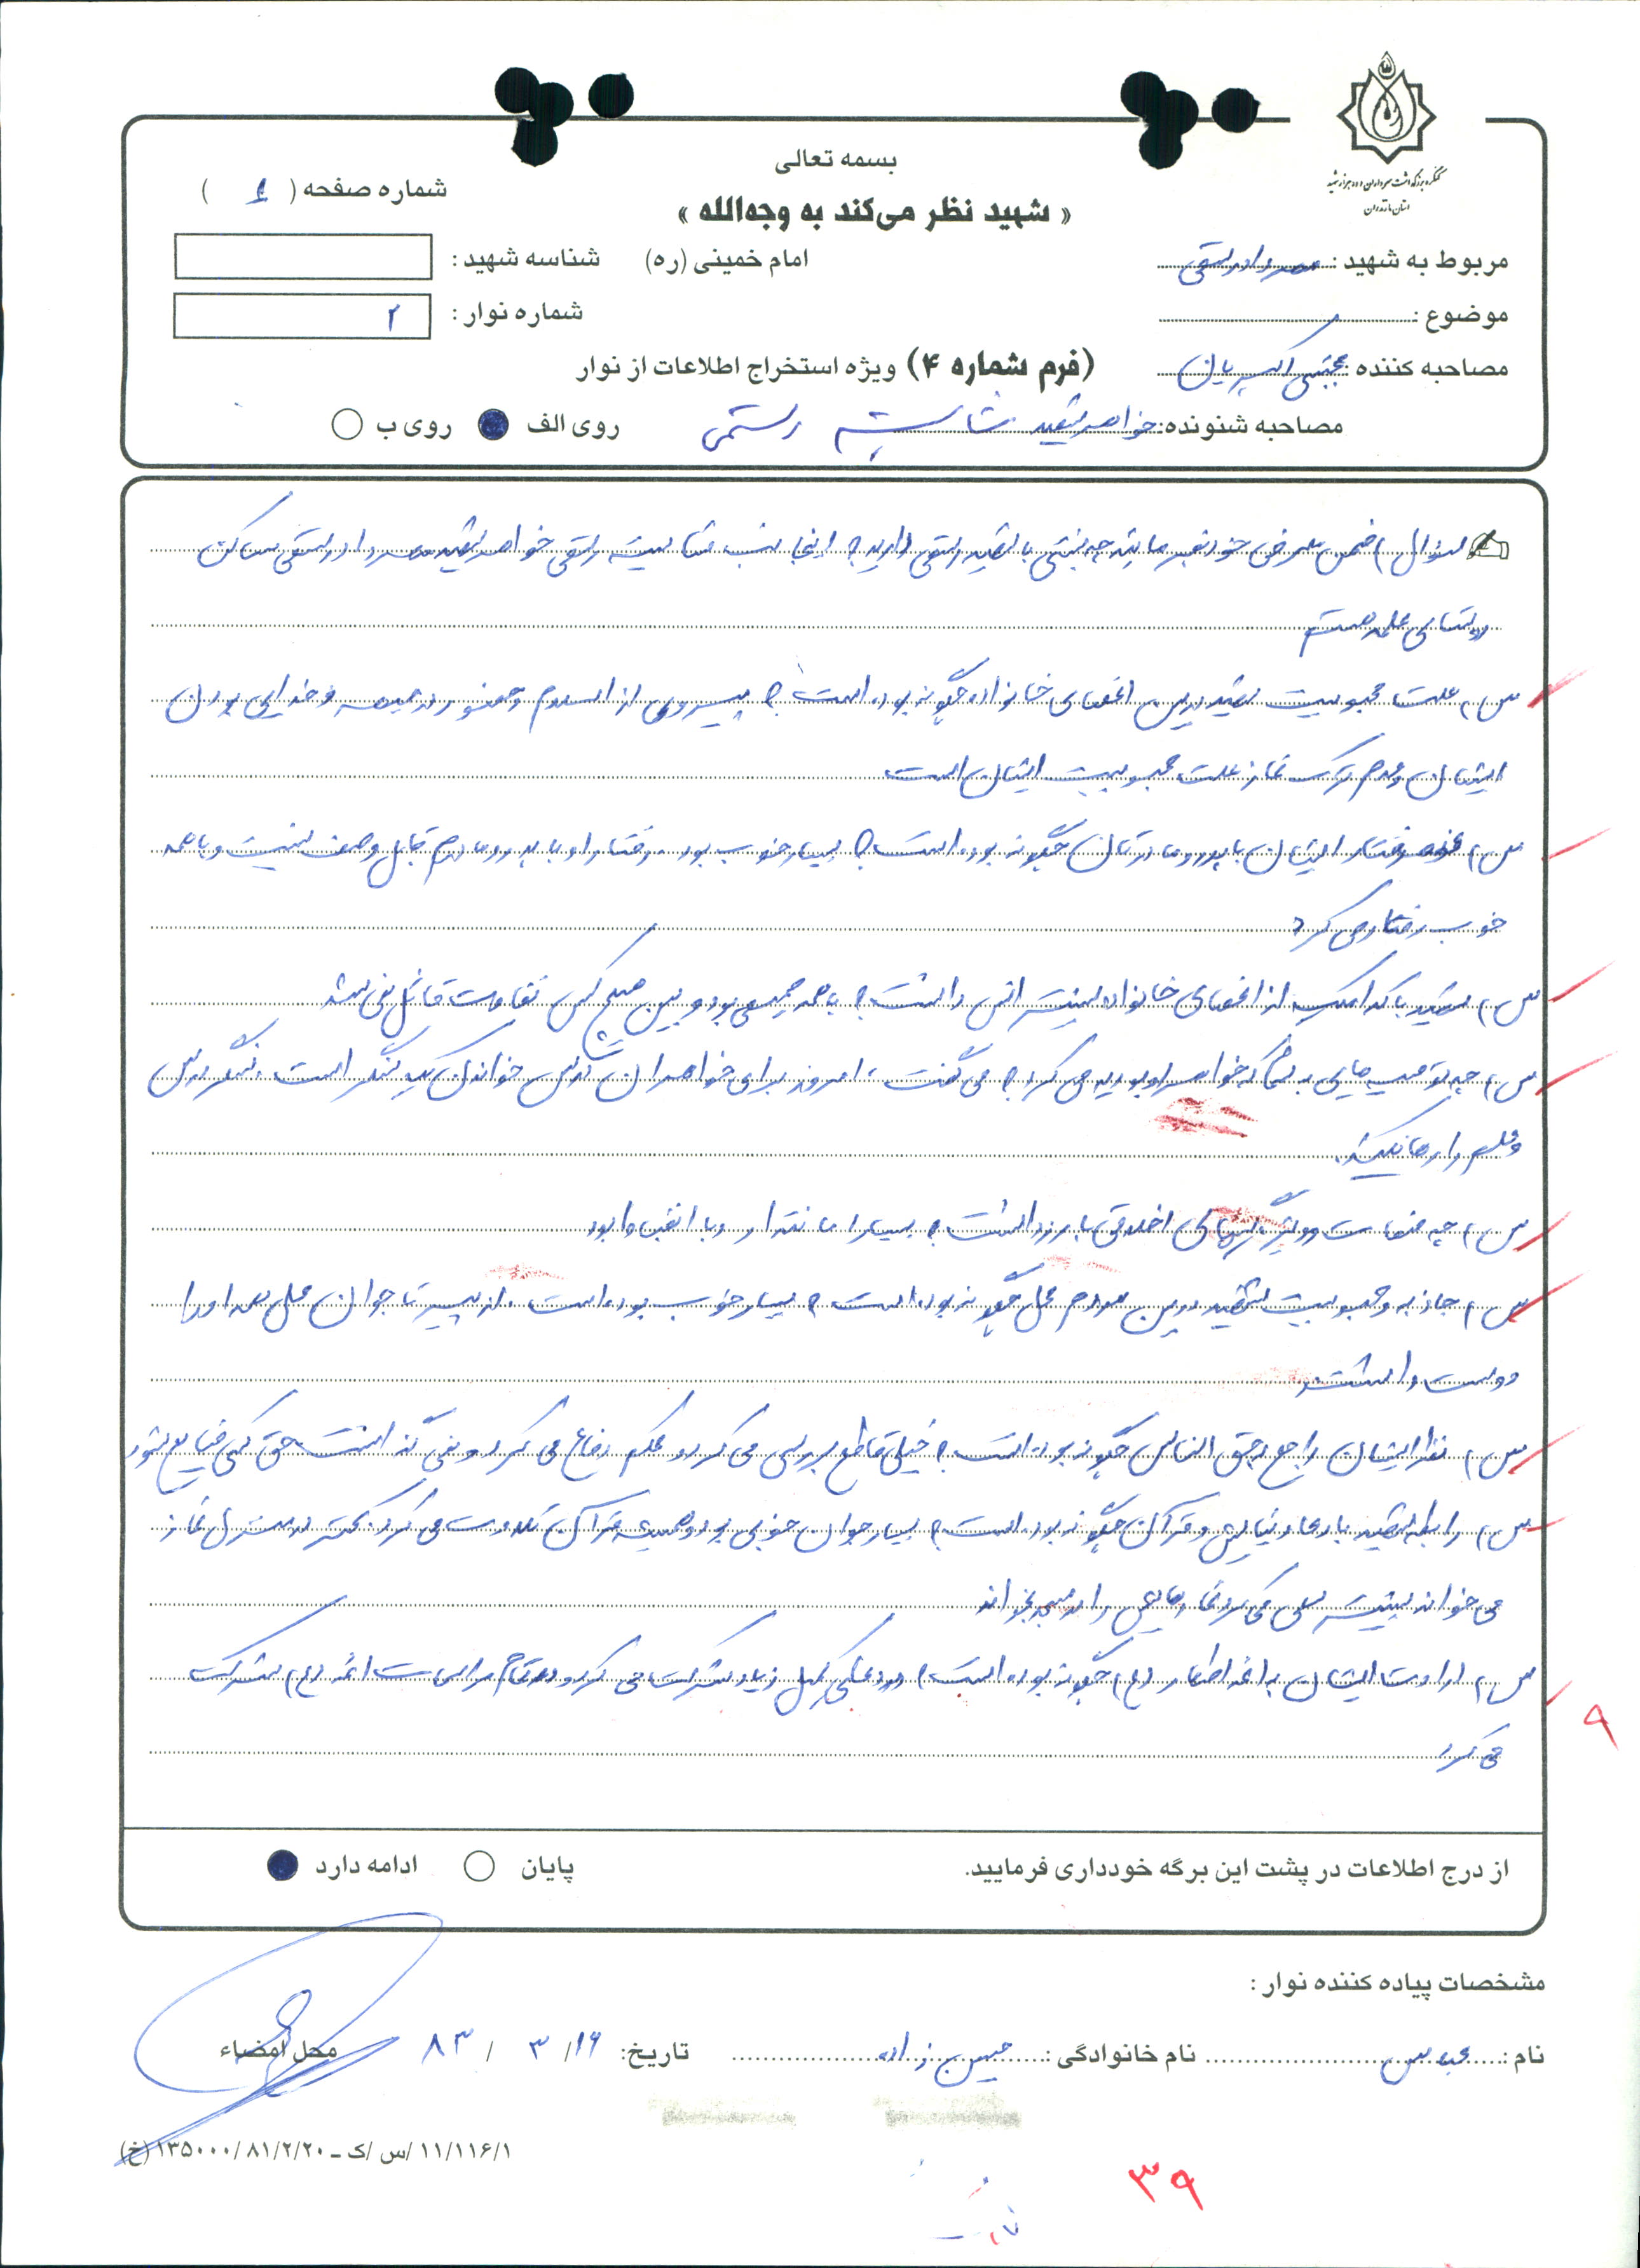 کنگره بزرگداشت سرداران و ده هزار شهید
استان مازندران
بسمه تعالی
« شهید نظر می‌کند به وجه‌الله »
شماره صفحه ( ۱ )
امام خمینی (ره)
شناسه شهید :
مربوط به شهید : رستمی
موضوع :
شماره نوار : ۲
مصاحبه کننده : مجتبی اکبریان
(فرم شماره ۴) ویژه استخراج اطلاعات از نوار
مصاحبه شنونده: خواهر شهید شایسته رستمی
روی الف
روی ب
سؤال) ضمن معرفی خود بفرمایید چه نسبتی با شهید رستمی دارید؟ اینجانب شایسته رستمی خواهر شهید رستمی ساکن
روستای هستم
س) علت محبوبیت شهید در بین اعضای خانواده چگونه بوده است؟ پیروی از اسلام و حضور در جبهه و خدایی بودن
ایشان و عدم ترک نماز علت محبوبیت ایشان است
س) رفتار ایشان با پدر و مادرتان چگونه بوده است؟ بسیار خوب بود. رفتار او با پدر و مادرم قابل وصف نیست و با همه
خوب رفتار می کرد
س) شهید با کدامیک از اعضای خانواده بیشتر انس داشت؟ با همه صمیمی بود و بین هیچ کس تفاوت قائل نمی شد
س) چه توصیه هایی به شما که خواهر او بودید می کرد؟ می گفت، امروز برای خواهران درس خواندن یک سنگر است، سنگر درس
و قلم را رها نکنید.
س) چه صفات و ویژگیهای اخلاقی بارز داشت؟ بسیار امانتدار و با انضباط بود
س) جاذبه و محبوبیت شهید در بین مردم محل چگونه بوده است؟ بسیار خوب بوده است. از پیر تا جوان محل همه او را
دوست داشتند
س) نظر ایشان راجع به حق الناس چگونه بوده است؟ خیلی قاطع بررسی می کرد و محکم دفاع می کرد و نمی گذاشت حق کسی ضایع شود
س) رابطه شهید با دعا و نیایش و قرآن چگونه بوده است؟ بسیار جوان خوبی بود و همیشه قرآن تلاوت می کرد. کمتر در منزل نماز
می خواند بیشتر سعی می کرد نمازهایش را در مسجد بخواند
س) ارادت ایشان به ائمه اطهار (ع) چگونه بوده است؟ در دعای کمیل زیاد شرکت می کرد و در تمام مراسمات ائمه (ع) شرکت
می کرد
۹
از درج اطلاعات در پشت این برگه خودداری فرمایید.
ادامه دارد
پایان
مشخصات پیاده کننده نوار :
نام : عباس نام خانوادگی : حسین زاده تاریخ: ۱۶/ ۳ / ۸۳ محل امضاء
۱۱/۱۱۶/۱ /س /ک ـ ۱۳۵۰۰۰/۸۱/۲/۲۰ (خ)
۳۹